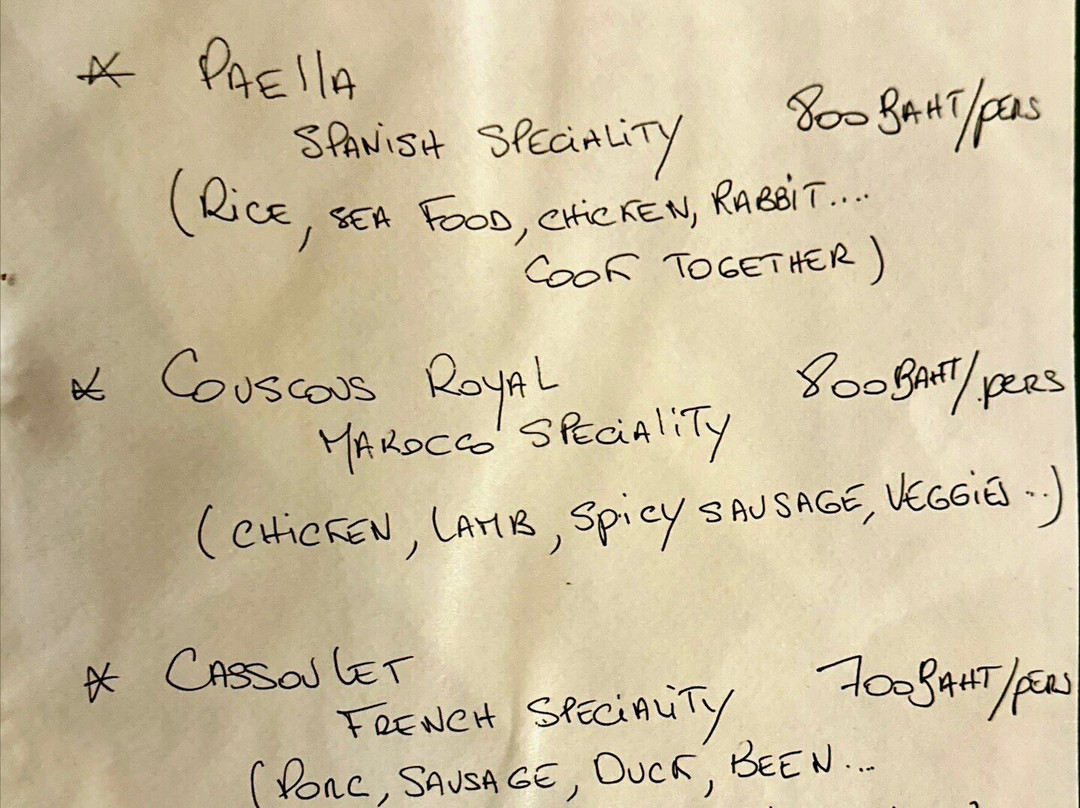 * PAEllA
SPANISH SPECIALITY 800 BAHT/PERS
(RICE, SEA FOOD, CHICKEN, RABBIT....
COOK TOGETHER)
* COUSCOUS ROYAL 800 BAHT/PERS
MAROCCO SPECIALITY
(CHICKEN, LAMB, SPICY SAUSAGE, VEGGIES...)
* CASSOULET 700 BAHT/PERS
FRENCH SPECIALITY
(PORC, SAUSAGE, DUCK, BEEN...